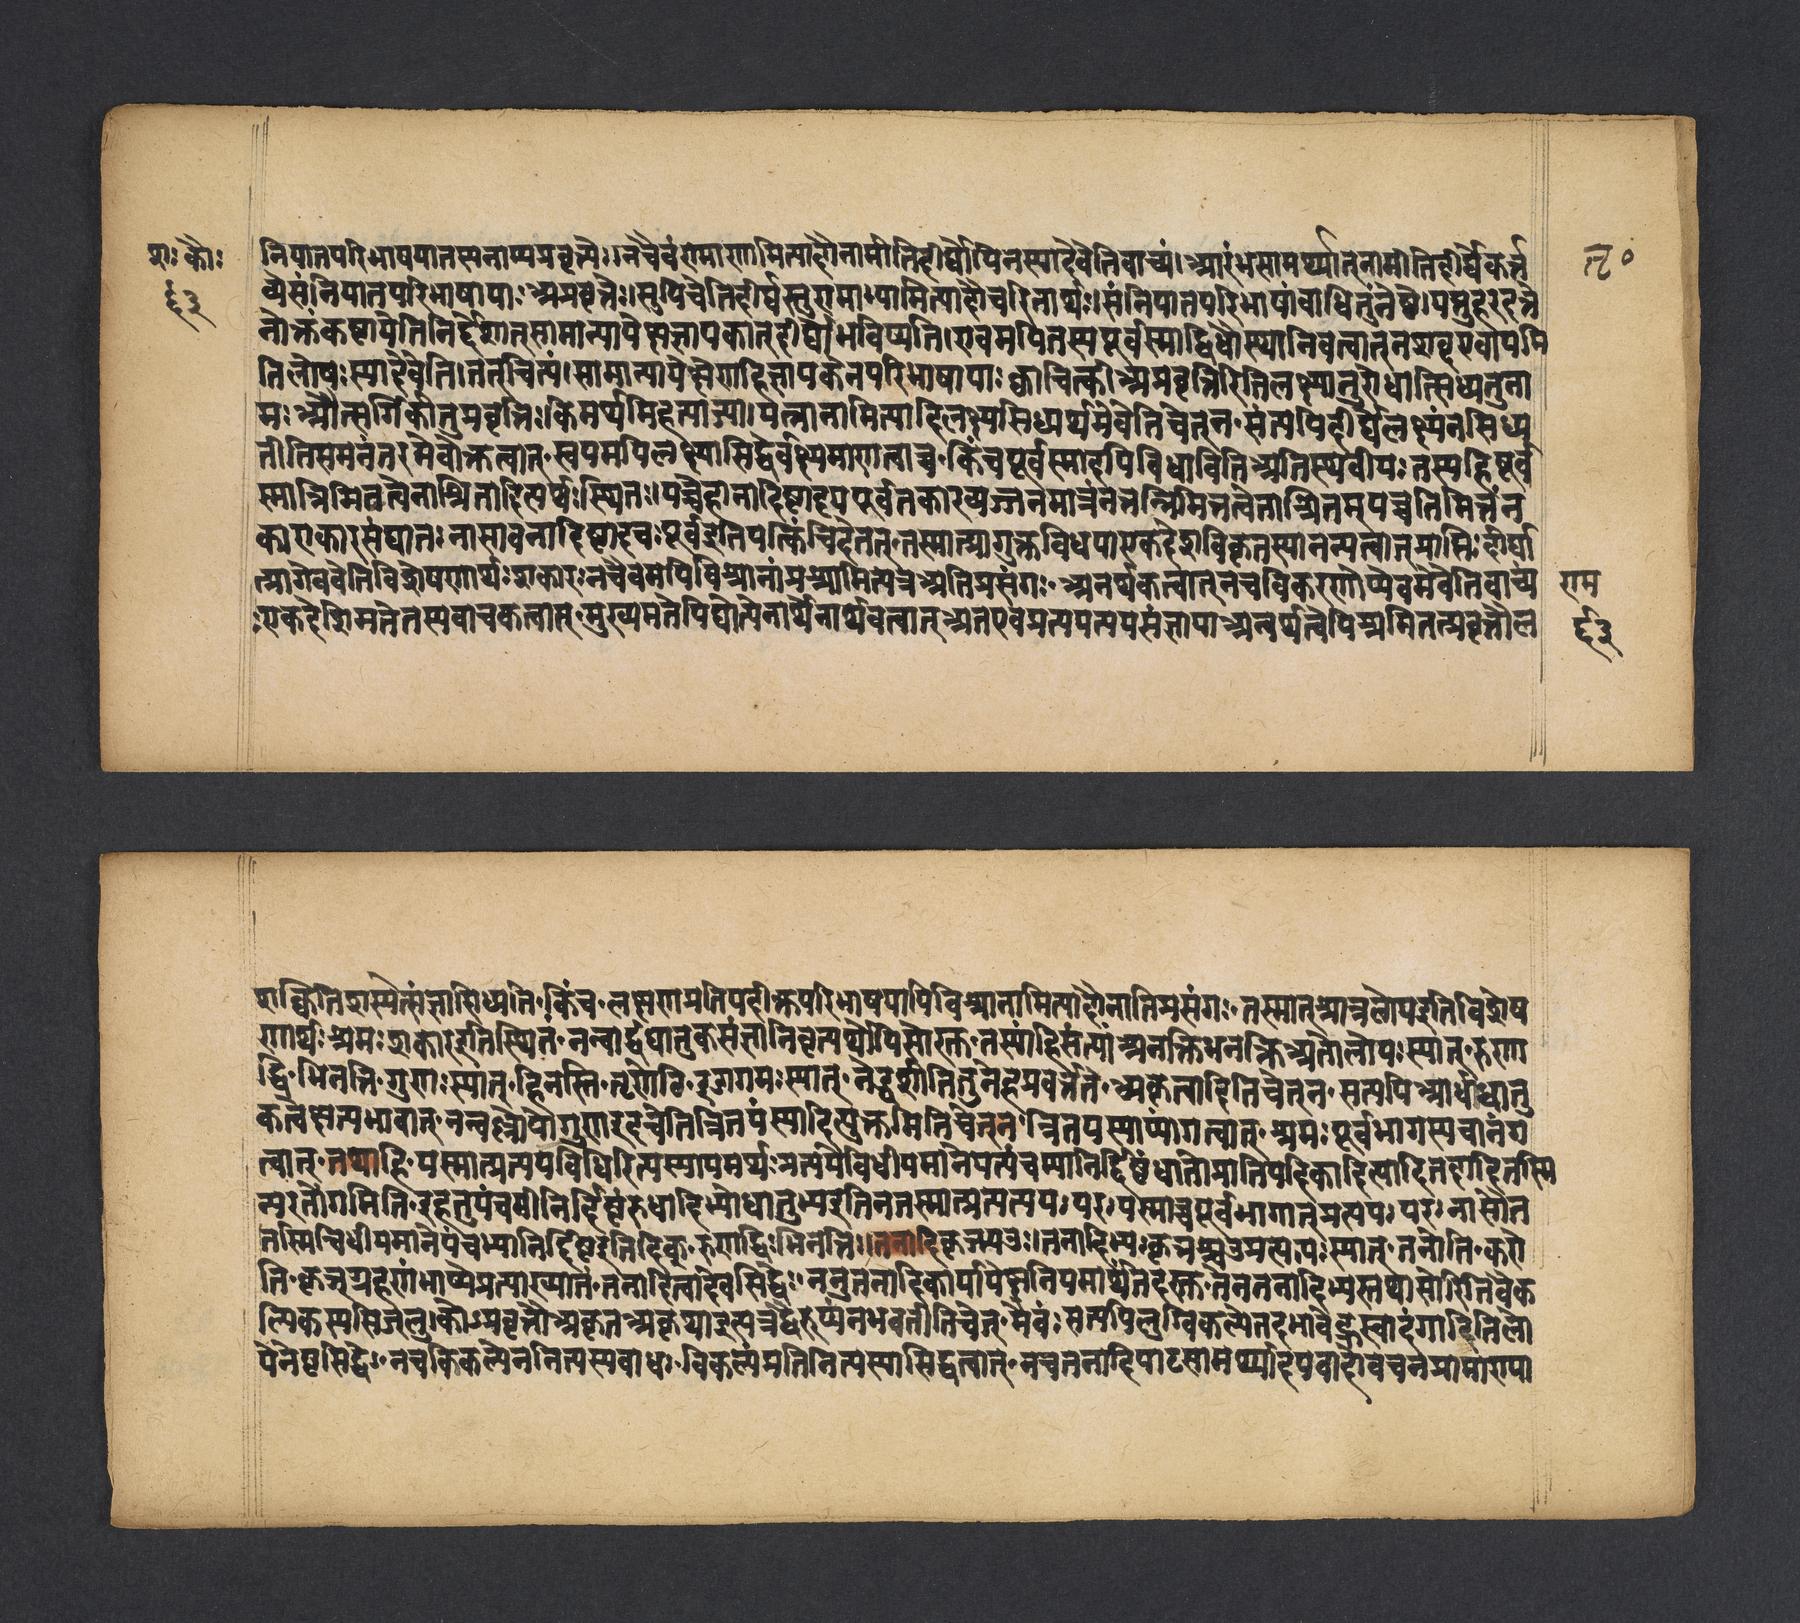 शः कौः
६३
ल ०
निपातपरिभाषयातस्यनाप्यप्रवृत्त्यैः।नचैवंरामाणामित्यादौनामीतिदीर्घोपिनस्यादेवेतिवाच्यं।आरंभसामर्थ्यातनामीतिदीर्घेकर्त्त
व्येसंनिपातपरिभाषायाः अप्रवृत्तेः।सुपिचेतिदीर्घस्तुरामा।यामित्यादौचरितार्थः।संनिपातपरिभाषांबाधितुंनेष्टे।यत्तुहरदत्ते
नोक्तंकष्टायेतिनिर्द्देशात्सामान्यापेक्षज्ञापकात्दीर्घोभविष्यति।एवमपितस्यपूर्वस्माद्विधौस्थानिवत्वातनशवृएवायमि
तिदोषःस्यादेवेति।तत्चिंत्यं।सामान्यापेक्षेणहिज्ञापकेनपरिभाषायाः क्वाचित्की अप्रवृत्तिरितिलक्ष्यानुरोधात्सिध्यतुना
मः औत्सर्गिकीतुप्रवृत्तिः किमर्थमिहत्याज्या।यत्नानामित्यादिलक्ष्यसिध्यर्थमेवेतिचेत्न सत्यपिदीर्घेलक्ष्यंनसिध्य
तीतिसमनंतरमेवोक्तत्वात् स्वयमपिलक्ष्यासिद्धेर्वक्ष्यमाणत्वाच्च किंचपूर्वस्मादपिविधावितिअतिस्थवीयः तस्यहिपूर्व
स्मान्निमित्तत्वेनाश्रितादित्यर्थःस्थितः।यच्चेहानादिष्टादचःपूर्वंतकारव्यञ्जनमात्रंनतन्निमित्तत्वेनाश्रितम्यच्चनिमित्तंन
काराकारसंघातः नासावनादिष्टादचःपूर्वइतियत्किंचिदेतत् तस्मात्प्रागुक्तविधयाएकदेशविकृतस्यानन्यत्वात्प्राप्तिः दीर्घा
त्प्रागेववेतिविशेषणार्थःशकारः नचैवमपिविश्नानांप्रश्नामित्यत्रअतिप्रसंगः अनर्थकत्वात्नचविकरणोप्येवमेवेतिवाच्यं
एकदेशिमतेतस्यवाचकत्वात् मुख्यमतेपिद्योत्येनार्थेनार्थवत्वात् अतएवप्रत्ययत्ययसंज्ञायाअन्वर्थत्वेपिश्नमितत्प्रवृत्तौल
राम
६३
शक्वितिशस्येत्संज्ञासिध्यति किंच लक्षणप्रतिपदोक्तपरिभाषयापिविश्नानामित्यादौनातिप्रसंगः तस्मात्श्नान्नलोपइतिविशेष
णार्थःश्नमःशकारइतिस्थितं नन्वार्द्धधातुकसंज्ञानिवृत्यर्थोपिसोस्तु तस्यांहिसंत्यांअनक्तिभनक्तिअतोलोपःस्यात् रुणा
द्धि भिनत्ति गुणःस्यात् हिनस्ति तृणेढि इडागमःस्यात् नेड्वशीतितुनेहप्रवर्त्तते अकृत्वादितिचेत्न सत्यपिआर्धधातु
कत्वेक्षत्यभावात् नन्वल्लोपोगुणइट्चेतित्रितयंस्यादित्युक्तमितिचेत्न त्रितयस्याप्यांगत्वात् श्नमःपूर्वभागस्यचानंग
त्वात् तथाहि यस्मात्प्रत्ययविधिरित्यस्यायमर्थःप्रत्ययेविधीयमानेयत्पंचम्यानिर्द्दिष्टंधातोःप्रातिपदिकादित्यादितदादितस्मि
न्परतोंगमिति इहतुपंचमीनिर्दिष्टंरुधादिभ्योधातुभ्यइतिनतस्मात्प्रत्यत्ययः परः यस्माच्चपूर्वभागात्प्रत्ययः परः नासौत
तस्मिन्विधीयमानेपंचम्यानिर्दिष्टइतिदिक् रुणद्धि भिनत्ति।तनादिकृञ्भ्यउः।तनादिभ्यः कृञश्चउप्रत्ययःस्यात् तनोति करो
ति कृञ्ग्रहणंभाष्येप्रत्याख्यातं तनादित्वादेवसिद्धेः ननुतनादिकार्यापेक्षनियमार्थंतदस्तु तेनतनादिभ्यस्तथासोरितिवैक
ल्पिकस्यसिज्लु।कोऽप्रवृत्तौअकृतअकृथाइत्यत्रद्वैरूप्यंनभवतीतिचेत् मैवं सत्यपिलुग्विकल्पेतदभावेह्रस्वादंगादितिलो
पेनेष्टसिद्धेः नचविकल्पेननित्यस्यबाधः विकल्पंप्रतिनित्यस्यासिद्धत्वात् नचतनादिपाठसामर्थ्यादपवादोवचनप्रामाण्या